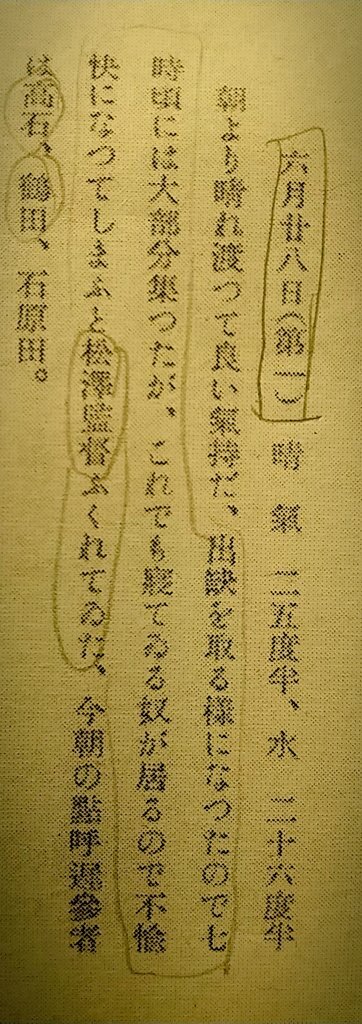 六月廿八日(第一) 晴 氣 二五度半、水 二十六度半
朝より晴れ渡つて良い氣持だ、出缺を取る樣になつたので七
時頃には大部分集つたが、これでも寢てゐる奴が居るので不愉
快になつてしまふと松澤監督ふくれてゐた、今朝の點呼遲參者
は高石、鶴田、石原田。